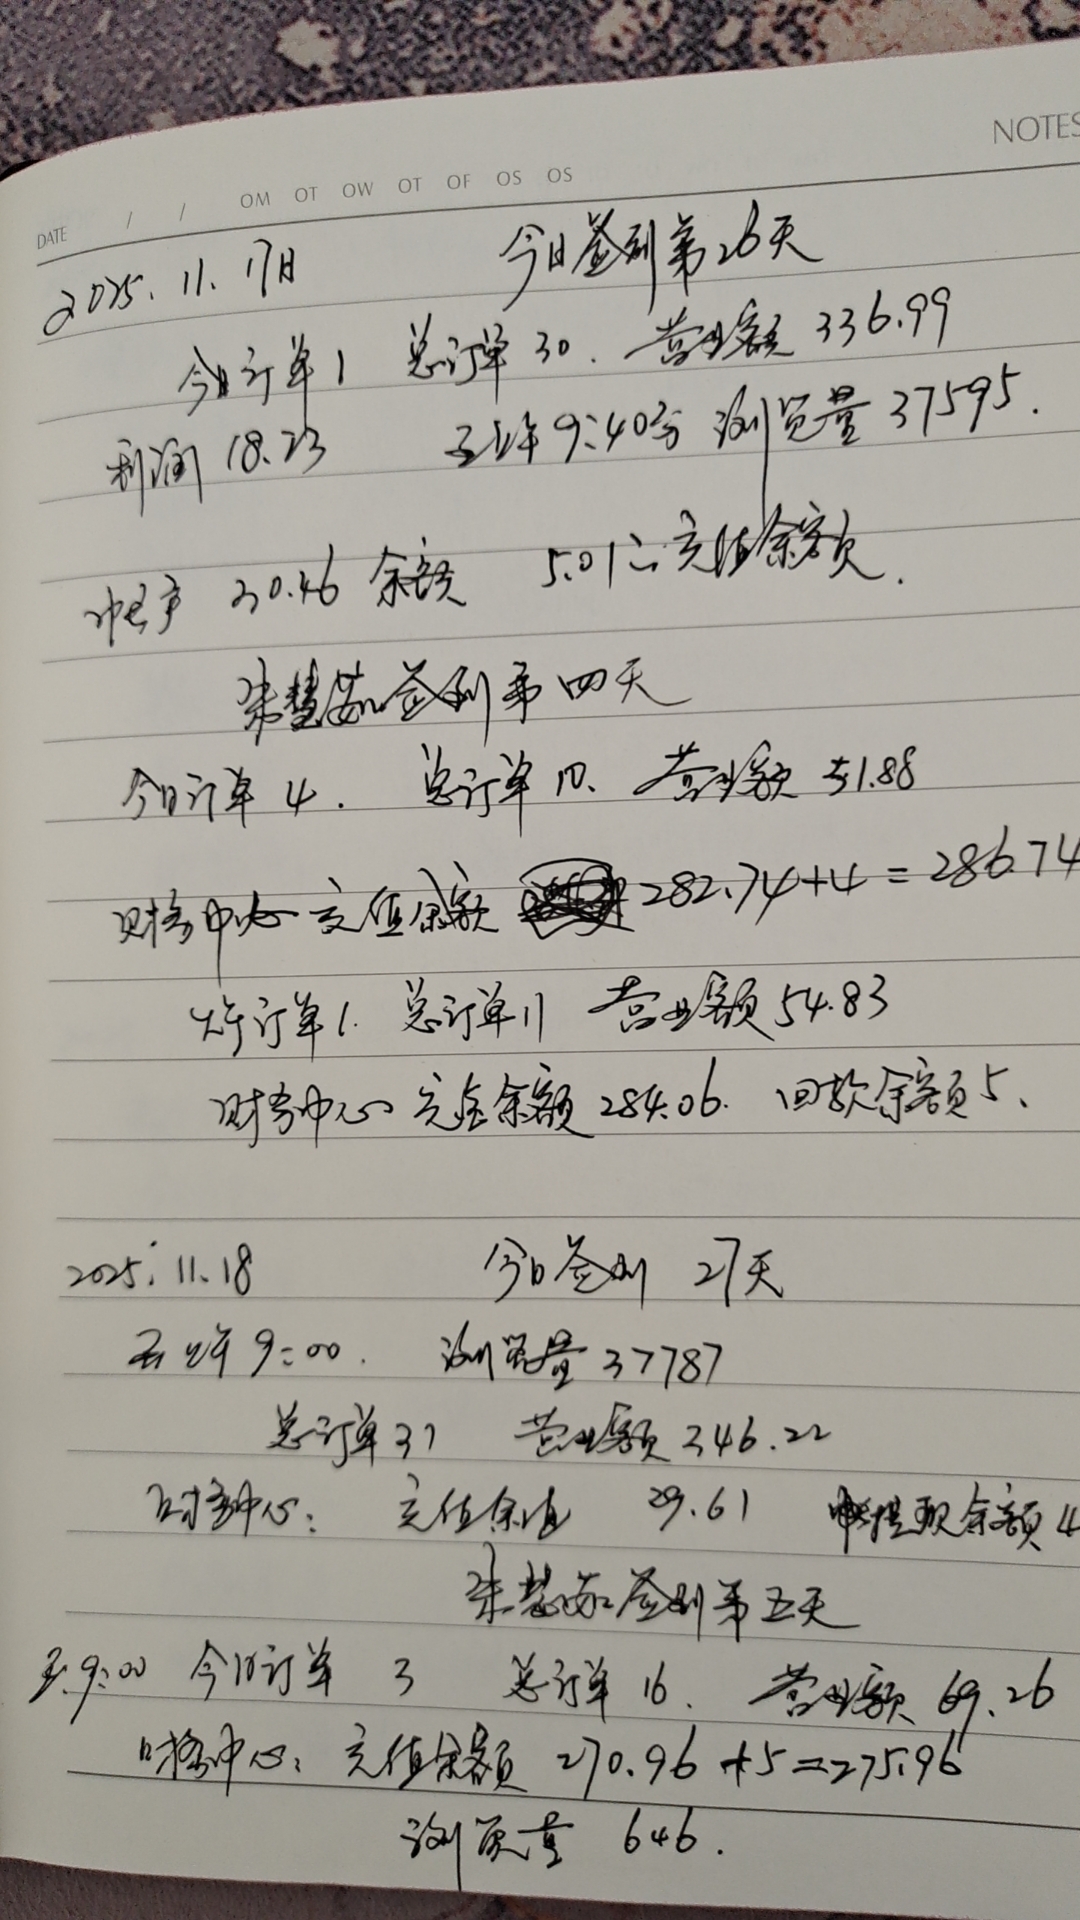 NOTES
DATE / / OM OT OW OT OF OS OS
2025.11.17日 今日签到第26天
今日订单1 总订单30. 营业额336.99
利润18.23 至上午9:40分 浏览量37595.
30.46 余额 5.01 充值余额.
朱慧茹签到第四天
今日订单4. 总订单10. 营业额51.88
财务中心充值余额 282.74+4=286.74
订单1. 总订单11 营业额54.83
财务中心 充值余额284.06. 回款余额5.
2025.11.18 今日签到 27天
至上午9:00. 浏览量37787
总订单31 营业额346.22
财务中心: 充值余值 29.61 提现余额4
朱慧茹签到第五天
至9:00 今日订单 3 总订单16. 营业额69.26
财务中心: 充值余额 270.96+5=275.96
浏览量 646.